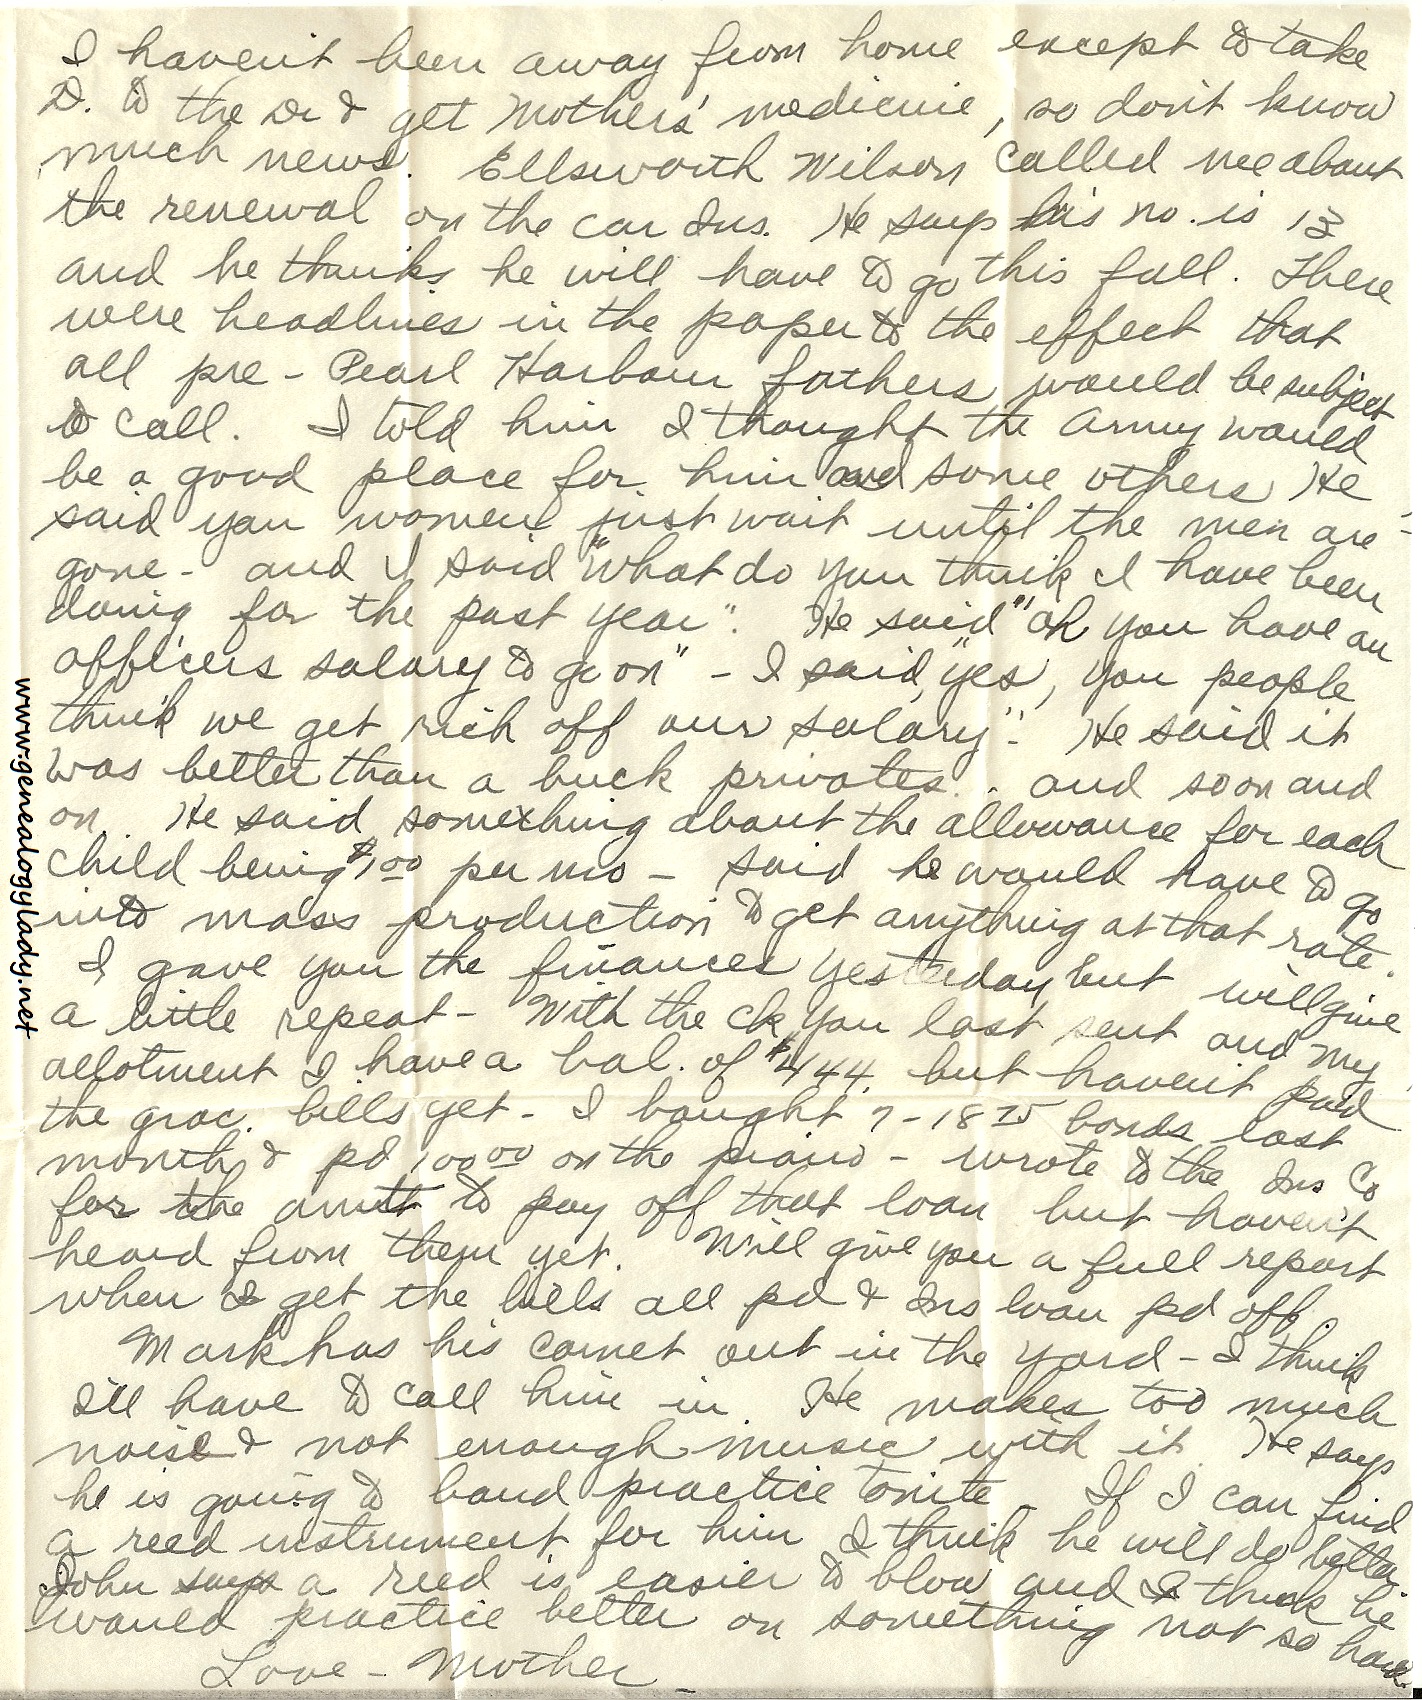 I haven't been away from home except to take
D. to the Dr & get Mothers' medicine, so don't know
much news. Ellsworth Wilson called me about
the renewal on the car Ins. He says his no. is 13
and he thinks he will have to go this fall. There
were headlines in the paper to the effect that
all pre-Pearl Harbour fathers would be subject
to call. I told him I thought the Army would
be a good place for him and some others He
said you women just wait until the men are
gone - and I said "what do you think I have been
doing for the past year". He said "oh you have an
officers salary to go on" - I said, "yes, you people
think we get rich off our salary". He said it
was better than a buck privates.. and so on and
on. He said something about the allowance for each
child being $1.00 per mo - said he would have to go
into mass production to get anything at that rate.
I gave you the finances yesterday but will give
a little repeat - With the ck you last sent and my
allotment I have a bal. of $444. but haven't paid
the groc. bills yet - I bought 7 - 18 75 bonds last
month & pd 100 00 on the piano - wrote to the Ins Co
for the amtt to pay off that loan but haven't
heard from them yet. Will give you a full report
when I get the bills all pd & Ins loan pd off.
Mark has his cornet out in the yard - I think
I'll have to call him in. He makes too much
noise & not enough music with it. He says
he is going to band practice tonite - If I can find
a reed instrument for him I think he will do better.
John says a reed is easier to blow and I think he
would practice better on something not so hard.
Love - Mother
www.genealogylady.net